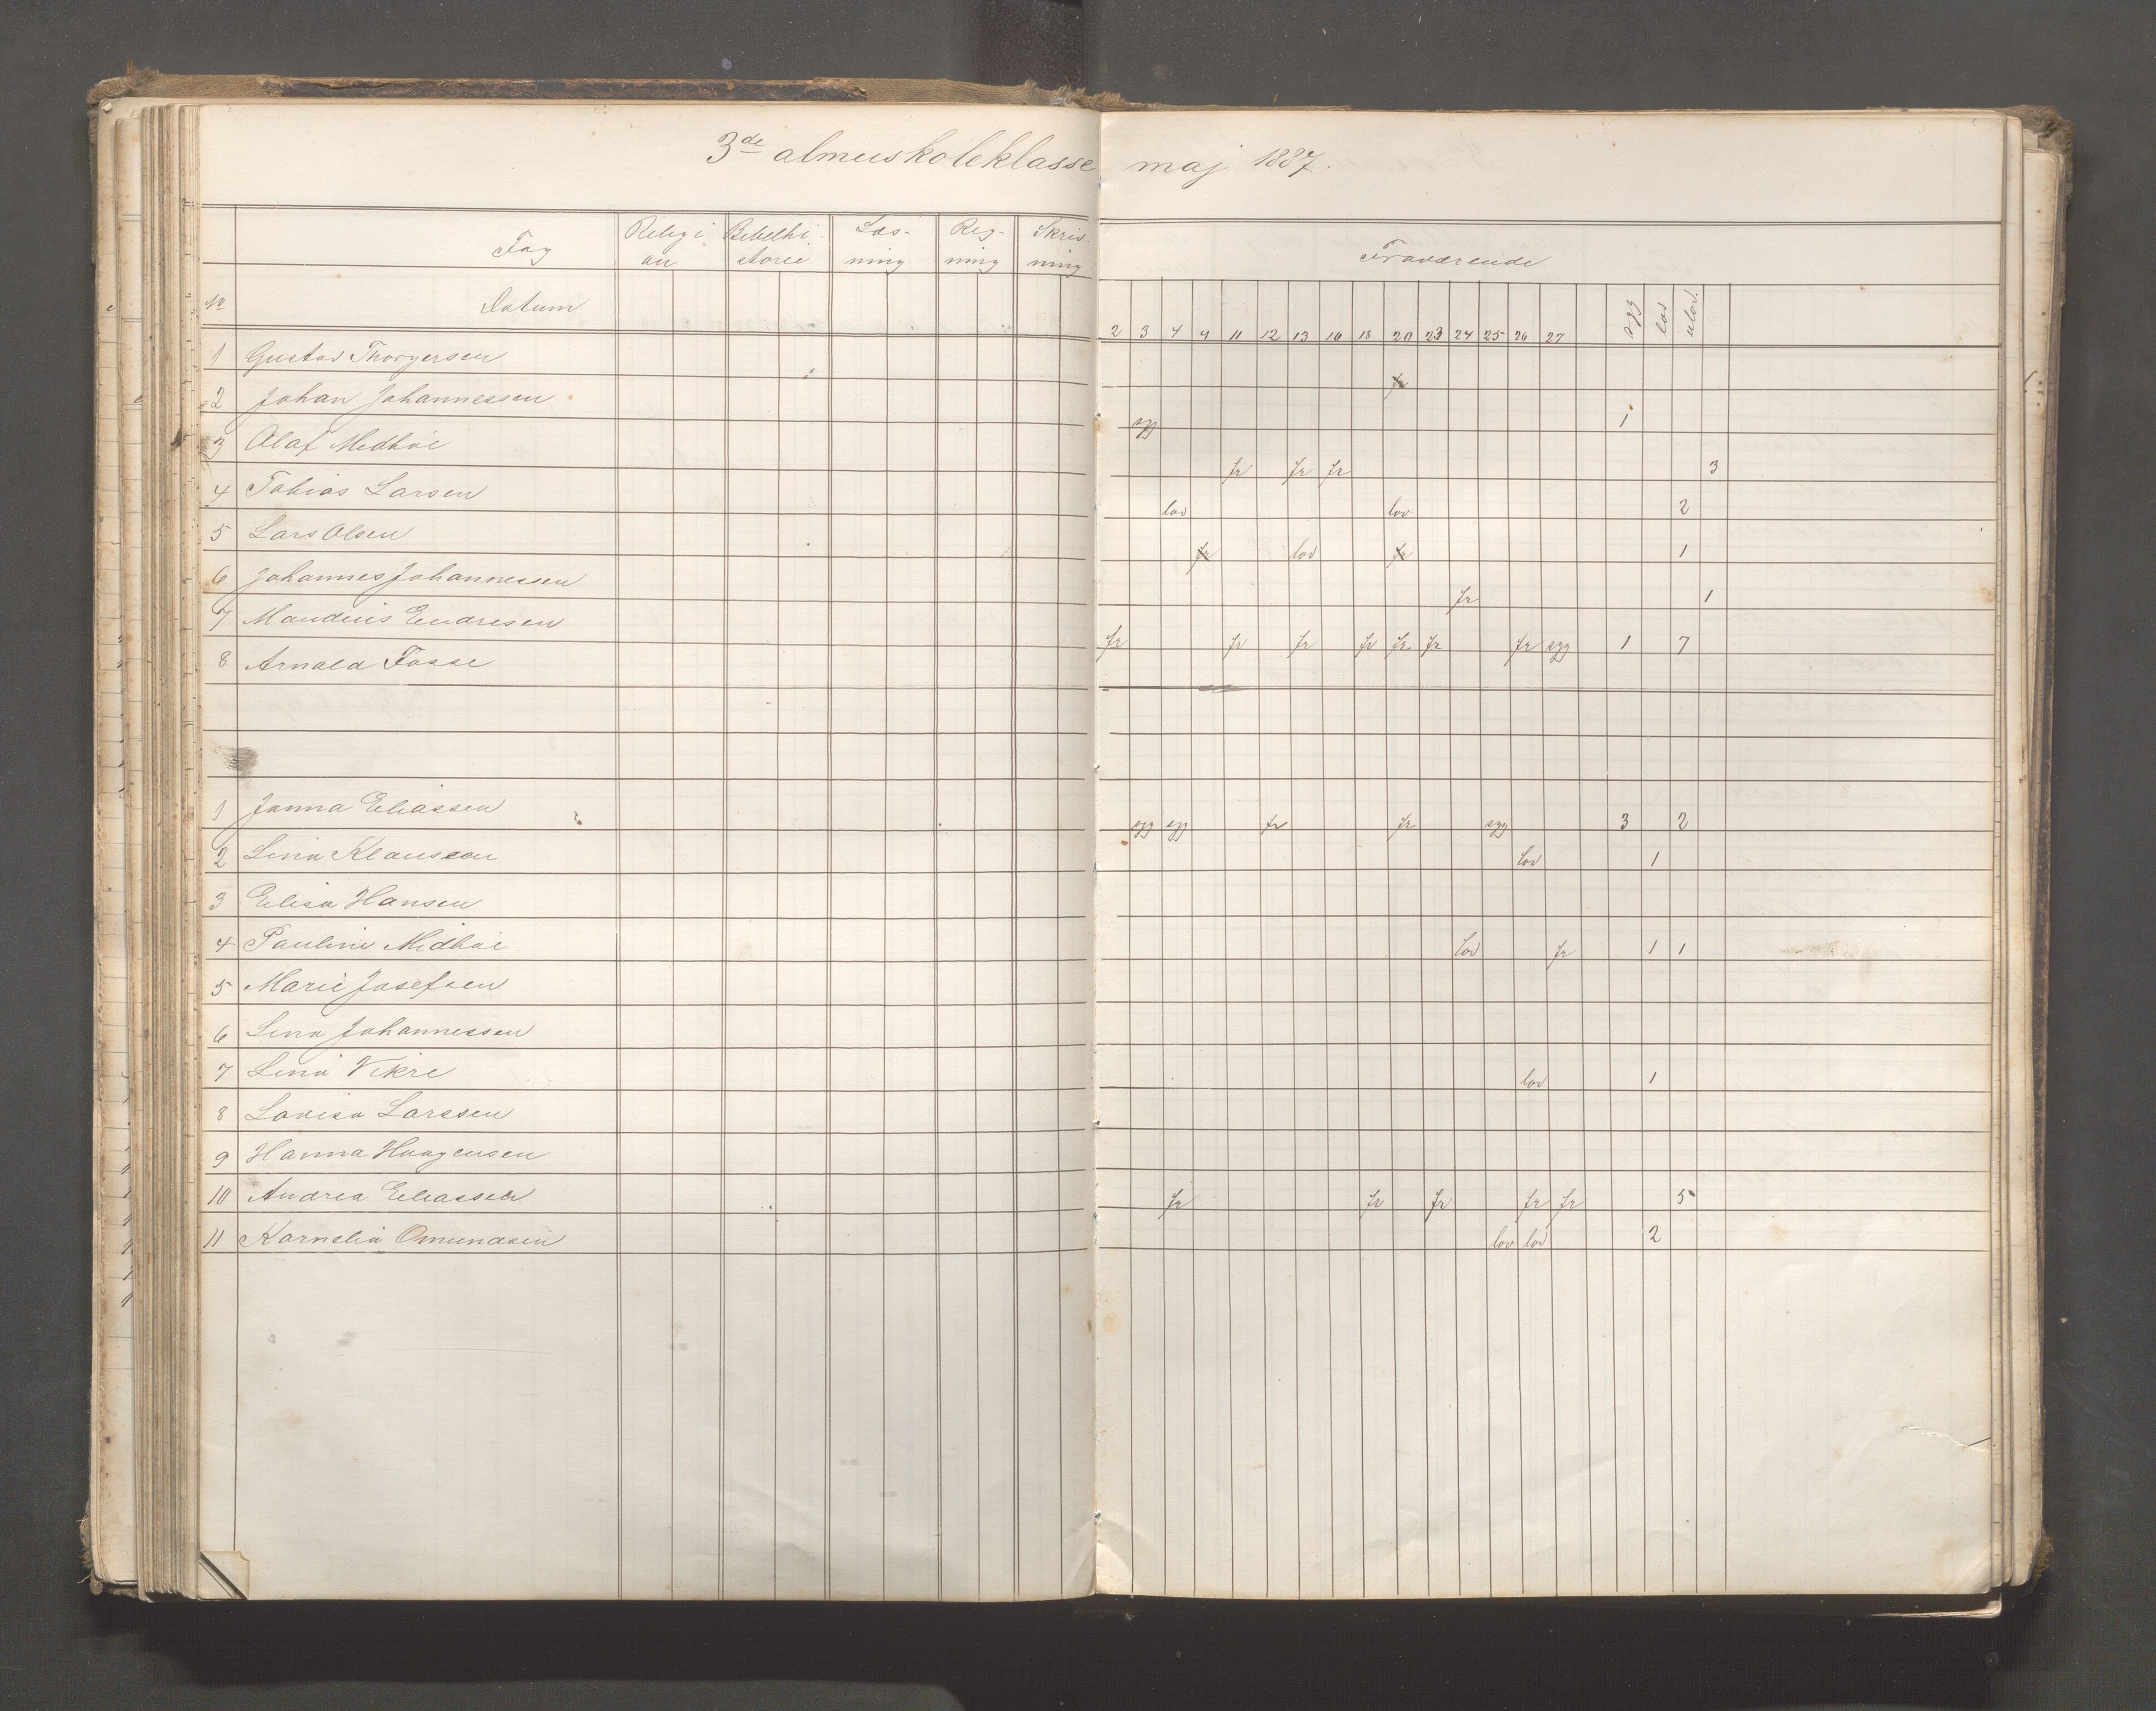 3de almueskoleklasse maj 1887.
Fag Religi Bibelhi- Læs- Reg- Skriv- Fraværende
on storie ning ning ning
No Datum 2 3 4 9 11 12 13 16 18 20 23 24 25 26 27 syg lov ulov.
1 Gustav Thorgersen fr
2 Johan Johannessen syg 1
3 Olaf Medbøe fr fr fr 3
4 Tobias Larsen lov lov 2
5 Lars Olsen fr lov fr 1
6 Johannes Johannessen fr 1
7 Maudius Endresen fr fr fr fr fr fr fr syg 1 7
8 Arnold Fosse
1 Janna Eliassen syg syg fr fr syg 3 2
2 Lina Klausen lov 1
3 Elisa Hansen
4 Pauline Midbøe lov fr 1 1
5 Marie Josefsen
6 Lina Johannessen
7 Lina Vikre lov 1
8 Lovisa Larssen
9 Hanna Haagensen
10 Andrea Eliassen fr fr fr fr fr 5
11 Kornelia Omundsen lov lov 2